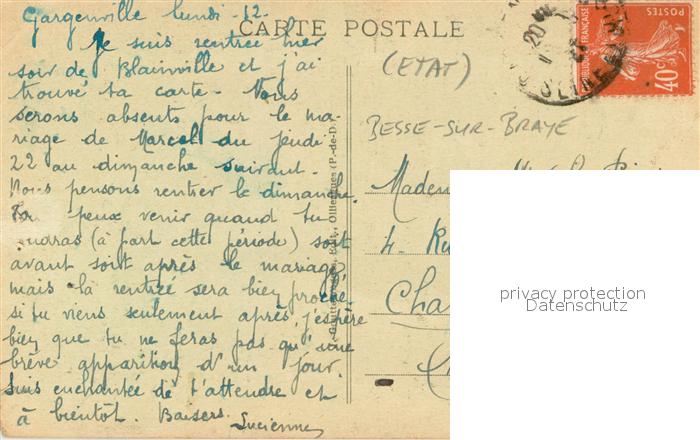 Gargenville lundi - 12
CARTE POSTALE
Je suis rentrée hier
soir de Blainville et j'ai
trouvé ta carte - Nous
serons absents pour le ma-
riage de Marcel du jeudi
22 au dimanche suivant -
Nous pensons rentrer le dimanche.
Tu peux venir quand tu
voudras (à part cette période) soit
avant soit après le mariage,
mais là rentrée sera bien proche
si tu viens seulement après, j'espère
bien que tu ne feras pas qu'une
brève apparition d'un jour.
Suis enchantée de t'attendre et
à bientôt. Baisers.
Lucienne
(ETAT)
BESSE-SUR-BRAYE
POSTES
40c
Madem
4. Ru
Cha
privacy protection
Datenschutz